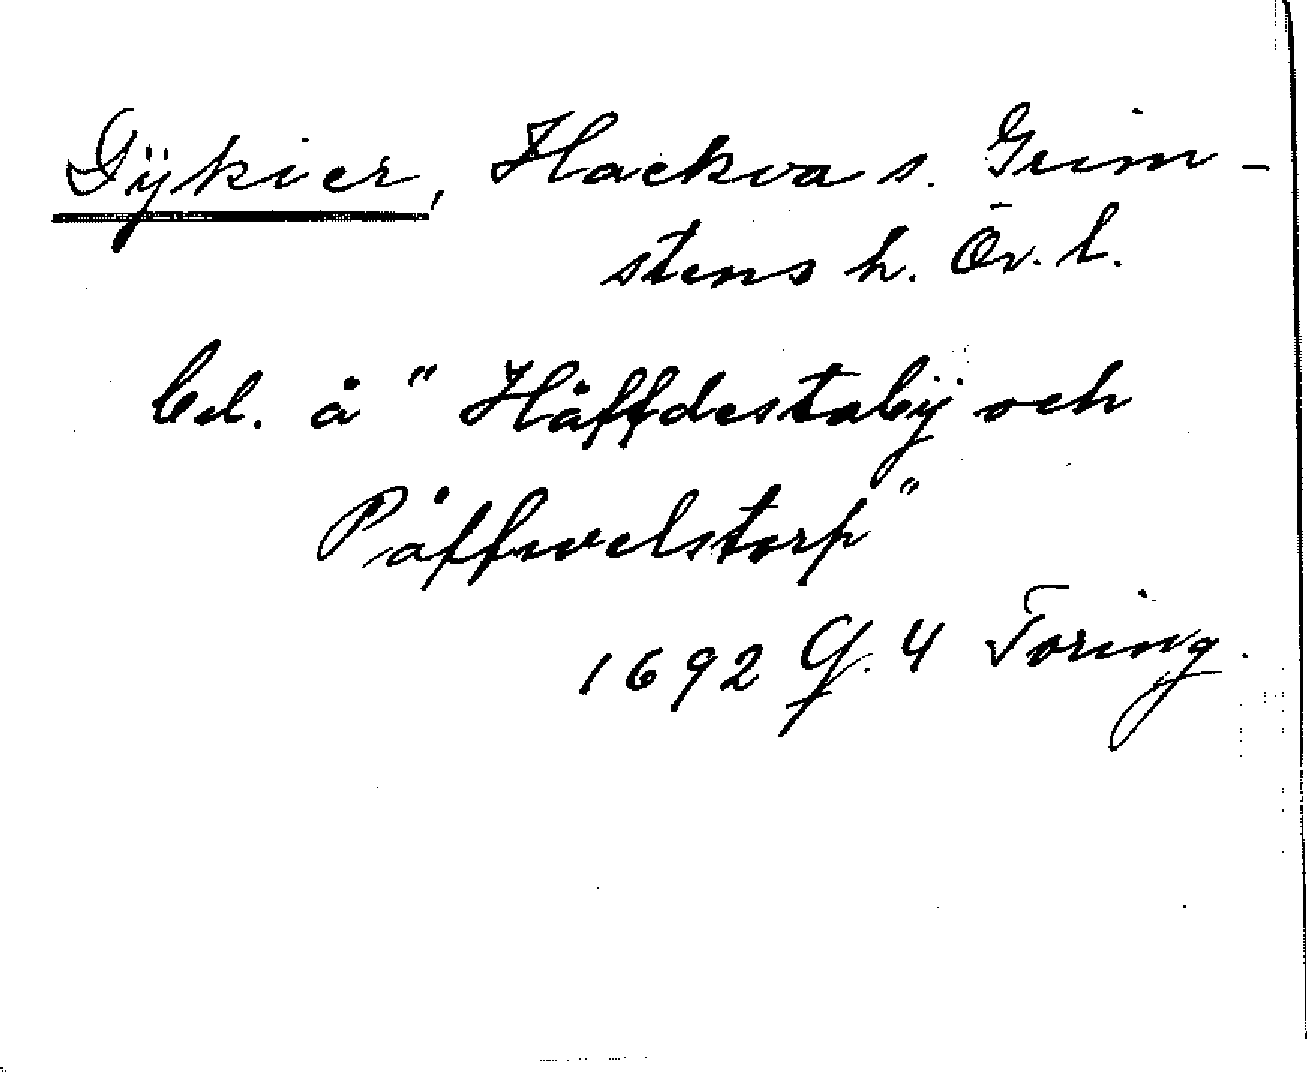 Dÿkier, Hackva s. Grim-
stens h. Ör. l.
bel. å "Håffdestabÿ och
Påffwelstorp"
1692 G. 4 Toring.